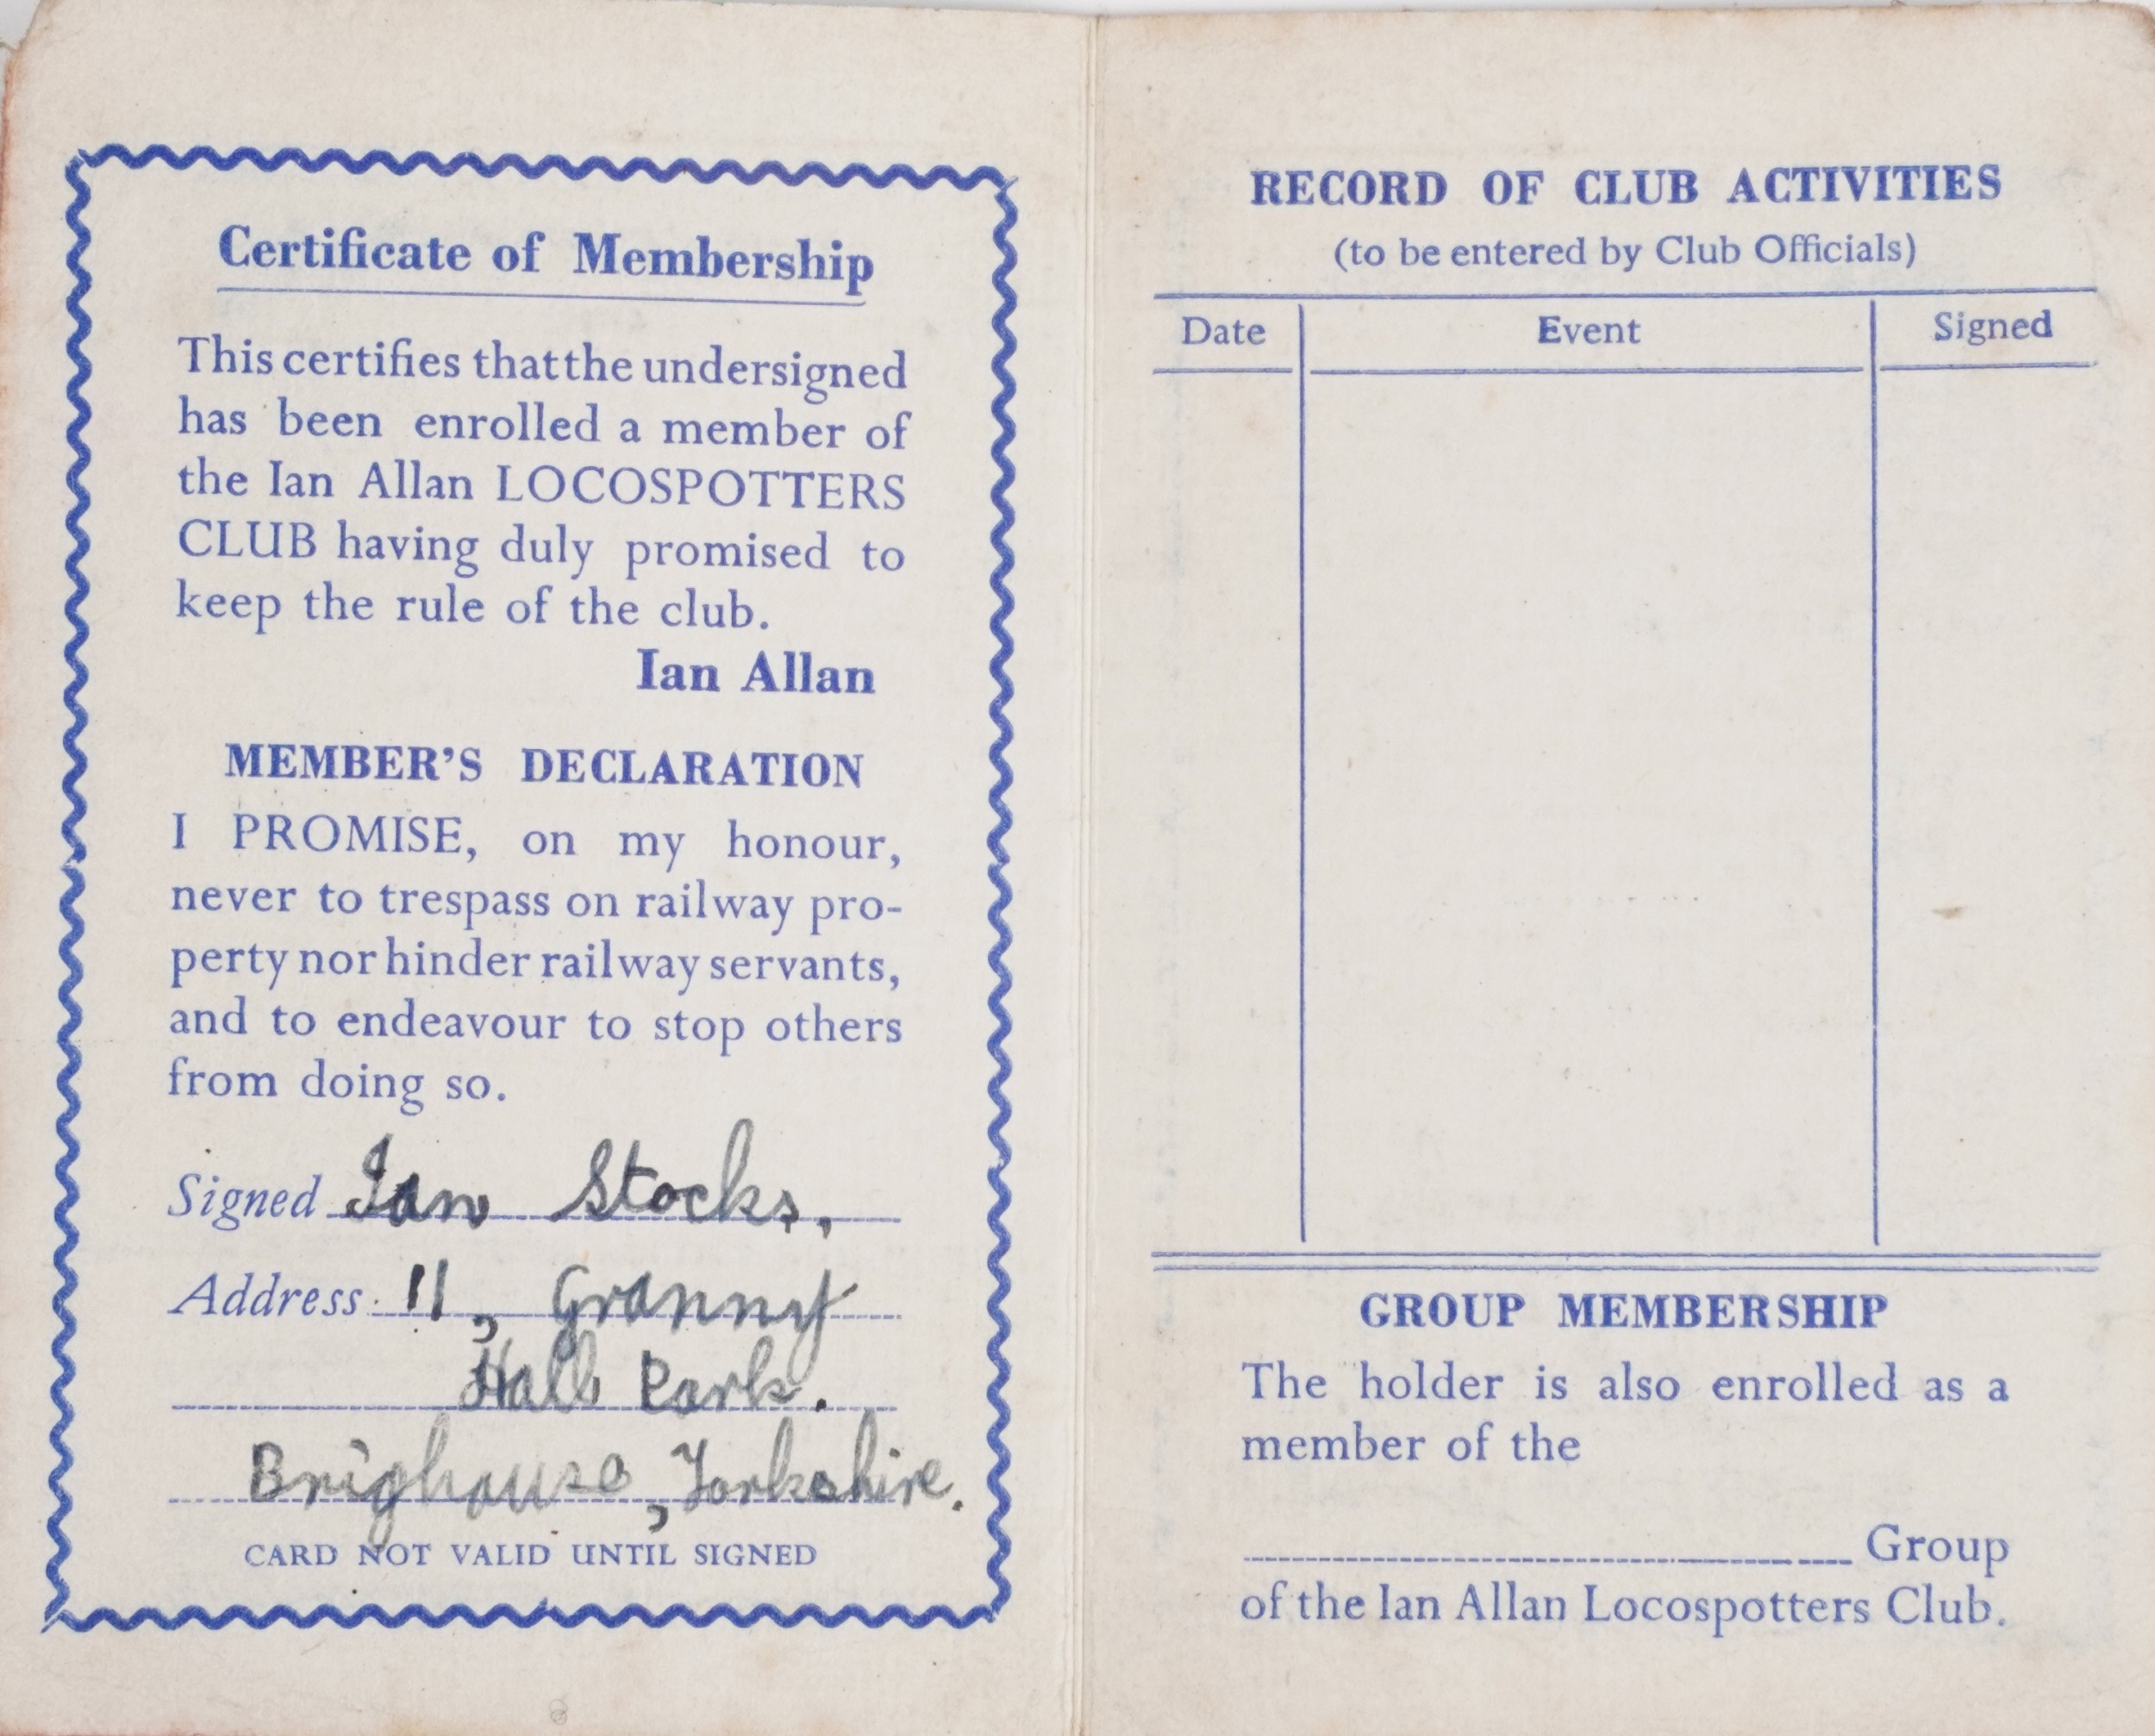 Certificate of Membership
This certifies that the undersigned
has been enrolled a member of
the Ian Allan LOCOSPOTTERS
CLUB having duly promised to
keep the rule of the club.
Ian Allan
MEMBER'S DECLARATION
I PROMISE, on my honour,
never to trespass on railway pro-
perty nor hinder railway servants,
and to endeavour to stop others
from doing so.
Signed Ian Stocks,
Address 11, Granny
Hall Park.
Brighouse, Yorkshire.
CARD NOT VALID UNTIL SIGNED
RECORD OF CLUB ACTIVITIES
(to be entered by Club Officials)
Date Event Signed
GROUP MEMBERSHIP
The holder is also enrolled as a
member of the
Group
of the Ian Allan Locospotters Club.